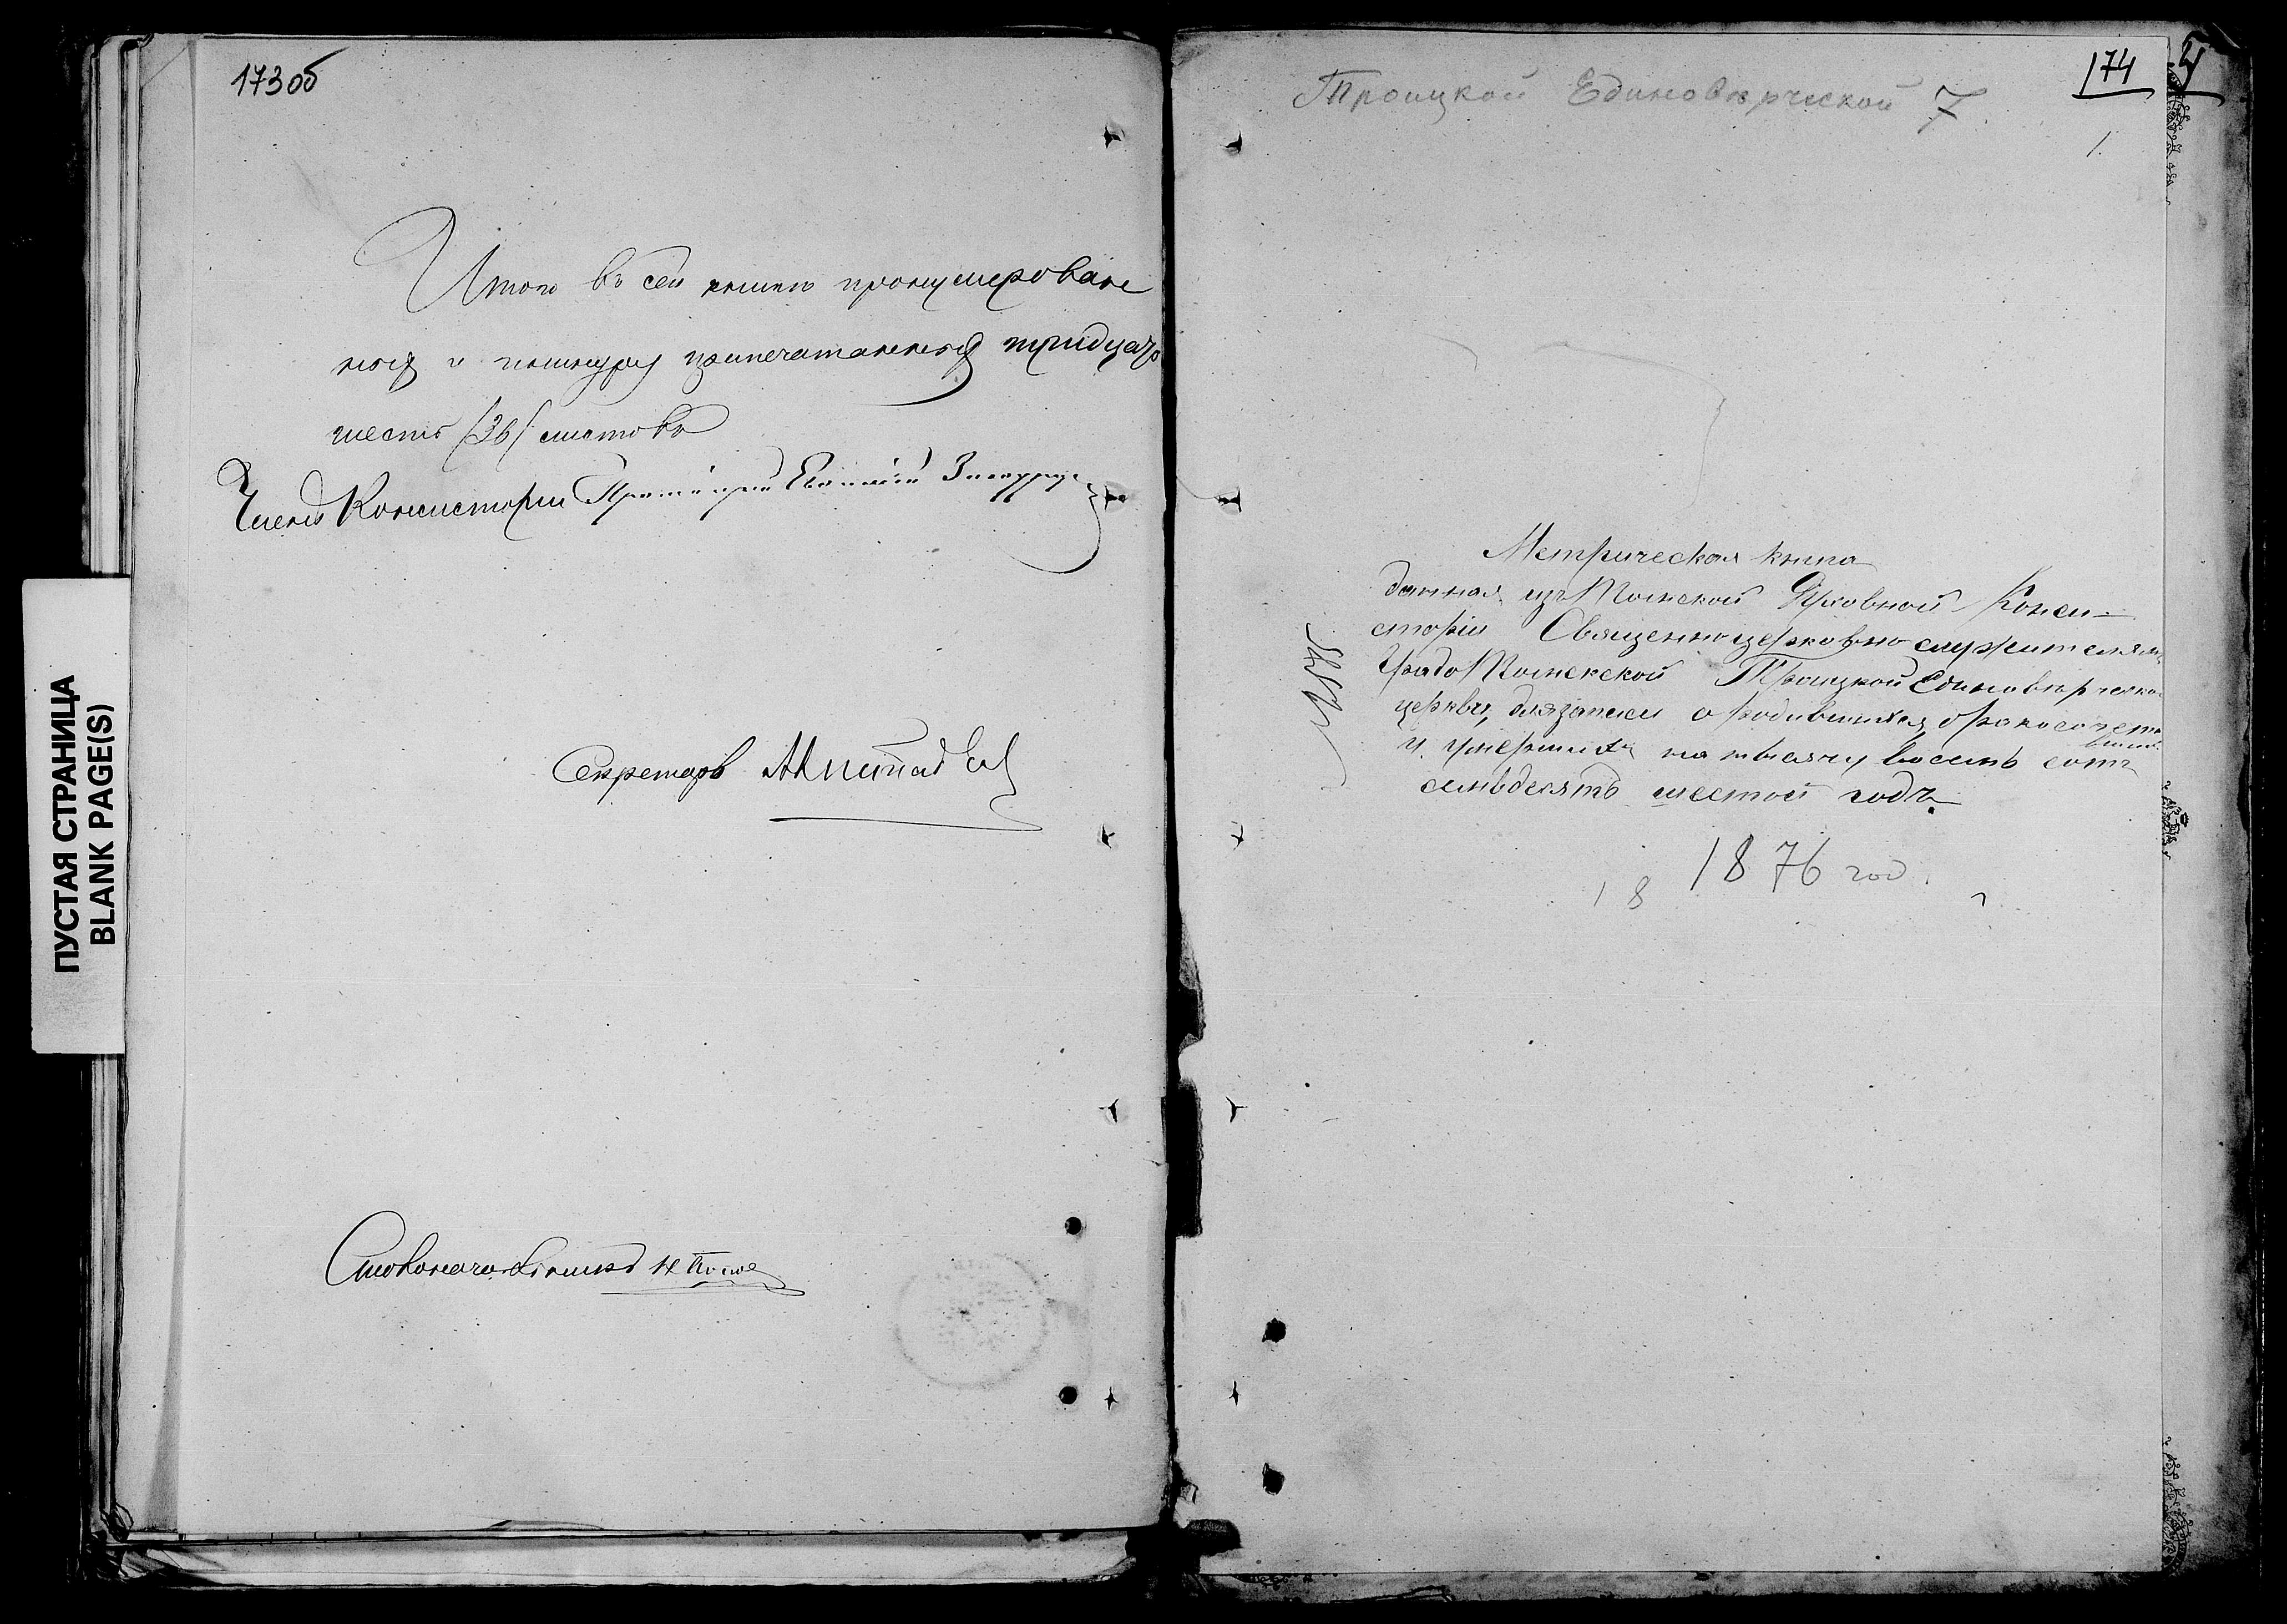 173об
Итого въ сей книгѣ пронумерован
ныхъ и припечатанныхъ тридцать
шесть (36) листовъ
Членъ Консисторіи Протоіерей Евгеній
Секретарь
Столоначальникъ Н.
ПУСТАЯ СТРАНИЦА
BLANK PAGE(S)
174
1.
Троицкой Единовѣрческой 7
Метрическая книга
данная изъ Томской Духовной Конси-
сторіи Священноцерковнослужителямъ
Градо Томской Троицкой Единовѣрческой
церкви, для записи о родившихся, бракосочета
вшихъ
и умершихъ на тысячу восемь сотъ
семьдесятъ шестой годъ.
1876 год.
1 8